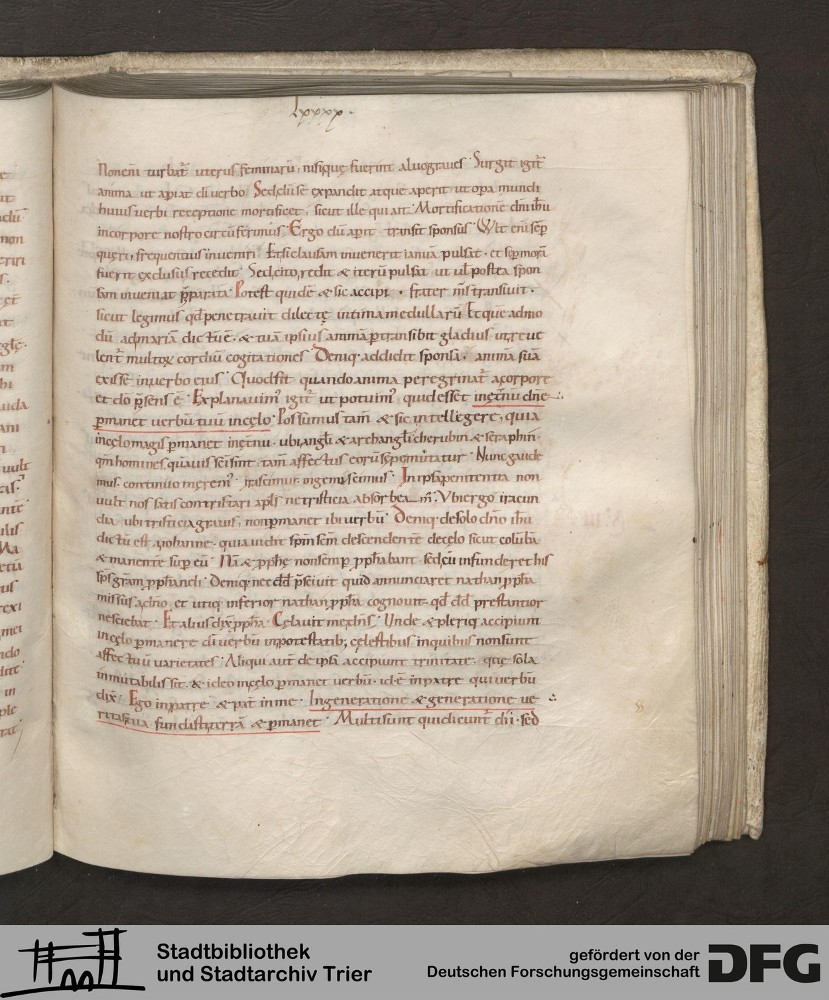 lxxxx.
Non eni turbat᷑ uterus feminarū, nisi quę fuerint aluo graues. Surgit igit᷑
anima ut apiat di uerbo. Sed cū se expandit atque aperit ut opa mundi
huius uerbi receptione mortificet, sicut ille qui ait. Mortificationē dni ihu
in corpore nostro circūferimus. Ergo dū aprit transit sponsus. Vult eni sep
queri, frequentius inueniri. Et si clausam inuenerit ianuā pulsat. et si p morā
fuerit exclusus recedit. Sed cito redit & iterū pulsat ut ul postea spon
sam inueniat pparatā. Potest quidē & sic accipi. frater ms transiuit.
sicut legimus qd penetrauit dilectę intima medullarū. Et que admo
dū ad mariam dictū ē. & tuā ipsius animā ptransibit gladius ut reue
lent᷑ multoꝝ cordiū cogitationes. Deniq. addidit sponsa. anima sua
exisse in uerbo eius. Quod fit quando anima peregrinat᷑ a corpore
et dō psens ē. Explanauim᷒ igit᷑ ut potuim᷒, quid esset in ęt̄nū dne
pmanet uerbū tuū in cęlo. Possumus tam̄ & sic intellegere, quia
in cęlo magis pmanet in ęt̄nu. ubi angli & archangli cherubin & seraphin.
qm̄ homines quamuis sci sint, tam̄ affectus eorū sepe mutatur. Nunc gaude
mus. continuo merem᷒. irascimur. ingemiscimus. In ipsa penitentia non
uult nos satis contristari apls ne tristicia absorbeam᷑. Vbi ergo iracun
dia ubi tristicia grauis, non pmanet ibi uerbū. Deniq. de solo dno ihu
dictū est a iohanne. quia uidit spm scm descendentē de cęlo sicut colūbā
& manentē sup eū. Nā & pphę non semp pphabant. sed cū infunderet his
sps grām pphandi. Deniq. nec dd psciuit quid annunciaret nathan ppha
missus a dno, et utiq. inferior nathan ppha cognouit. qd dd prestantior
nesciebat. Et alius dix ppha. Celauit me dns. Unde & pleriq. accipiunt
in cęlo pmanere di uerbū in potestatib; cęlestibus in quibus non sunt
affectuū varietates. Aliqui aut de ipsa accipiunt trinitate. que sola
inmutabilis sit. & ideo in cęlo pmanet uerbū. id ē in patre qui uerbū
dix. Ego in patre & pat in me. In generatione & generatione ue
ritas tua fundasti terrā & pmanet. Multi sunt qui dicunt᷑ dii. sed
Stadtbibliothek
und Stadtarchiv Trier
gefördert von der
Deutschen Forschungsgemeinschaft
DFG